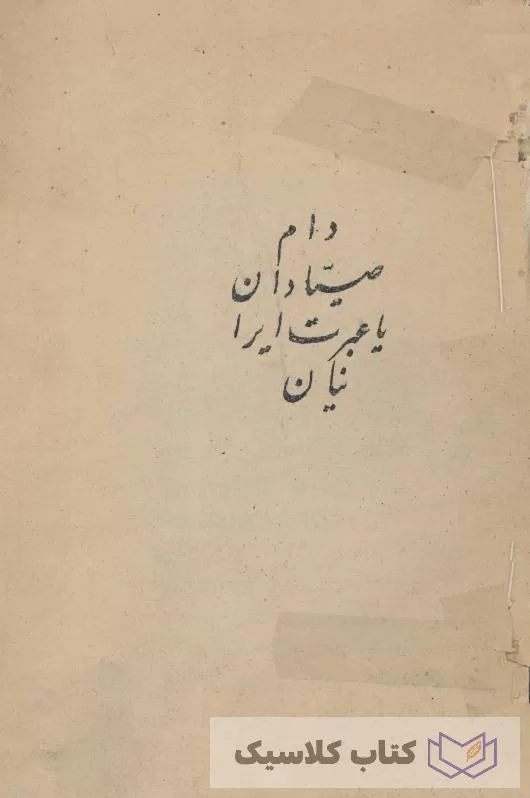 دام
صیّادان
یا عبرت ایرا
نیان
کتاب کلاسیک